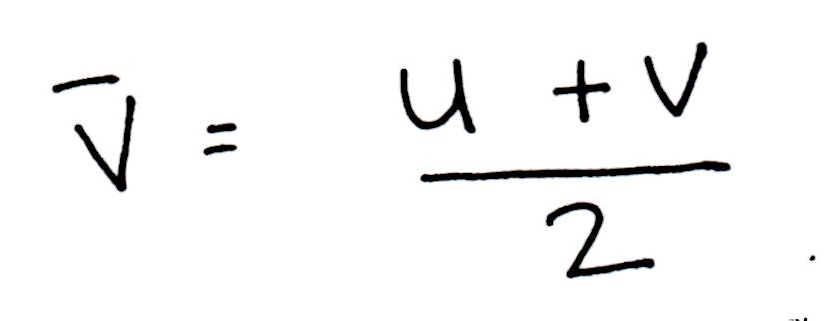 v̄ = (u + v) / 2